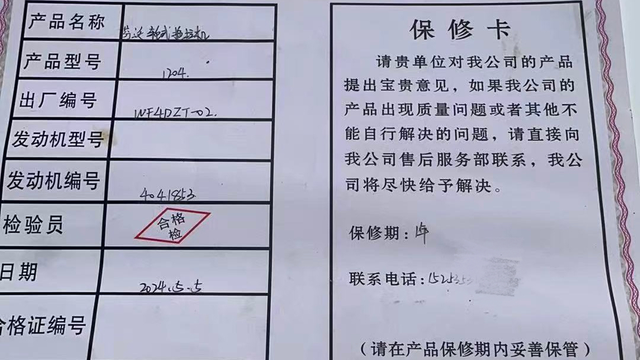 产品名称
轮式拖拉机
产品型号
1204.
出厂编号
WF4DZT-02.
发动机型号
发动机编号
4041853
检验员
合格
检
日期
2024.5.5
合格证编号
保修卡
请贵单位对我公司的产品
提出宝贵意见，如果我公司的
产品出现质量问题或者其他不
能自行解决的问题，请直接向
我公司售后服务部联系，我公
司将尽快给予解决。
保修期：1年
联系电话：1525353
（请在产品保修期内妥善保管）